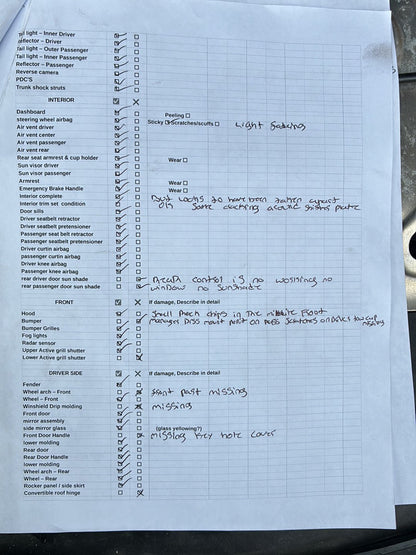 Tail light – Inner Driver
Reflector – Driver
Tail light – Outer Passenger
Tail light – Inner Passenger
Reflector – Passenger
Reverse camera
PDC'S
Trunk shock struts
INTERIOR
Dashboard Peeling
steering wheel airbag Sticky Scratches/scuffs Light
Air vent driver
Air vent center
Air vent passenger
Air vent rear
Rear seat armrest & cup holder Wear
Sun visor driver
Sun visor passenger
Armrest Wear
Emergency Brake Handle Wear
Interior complete But Looks to have been taken apart
Interior trim set condition OK Some cracking around shifter plate
Door sills
Driver seatbelt retractor
Driver seatbelt pretensioner
Passenger seat belt retractor
Passenger seatbelt pretensioner
Driver curtain airbag
passenger curtain airbag
Driver knee airbag
Passenger knee airbag
rear driver sun shade control is no working no
rear passenger door sun shade window no sunshade
FRONT If damage, Describe in detail
Hood Small chips in The Front
Bumper missing
Bumper Grilles
Fog lights
Radar sensor
Upper Active grill shutter
Lower Active grill shutter
DRIVER SIDE If damage, Describe in detail
Fender
Wheel arch – Front front part missing
Wheel – Front
Winshield Drip molding missing
Front door
mirror assembly
side mirror glass (glass yellowing?)
Front Door Handle missing key hole cover
lower molding
Rear door
Rear Door Handle
lower molding
Wheel arch – Rear
Wheel – Rear
Rocker panel / side skirt
Convertible roof hinge